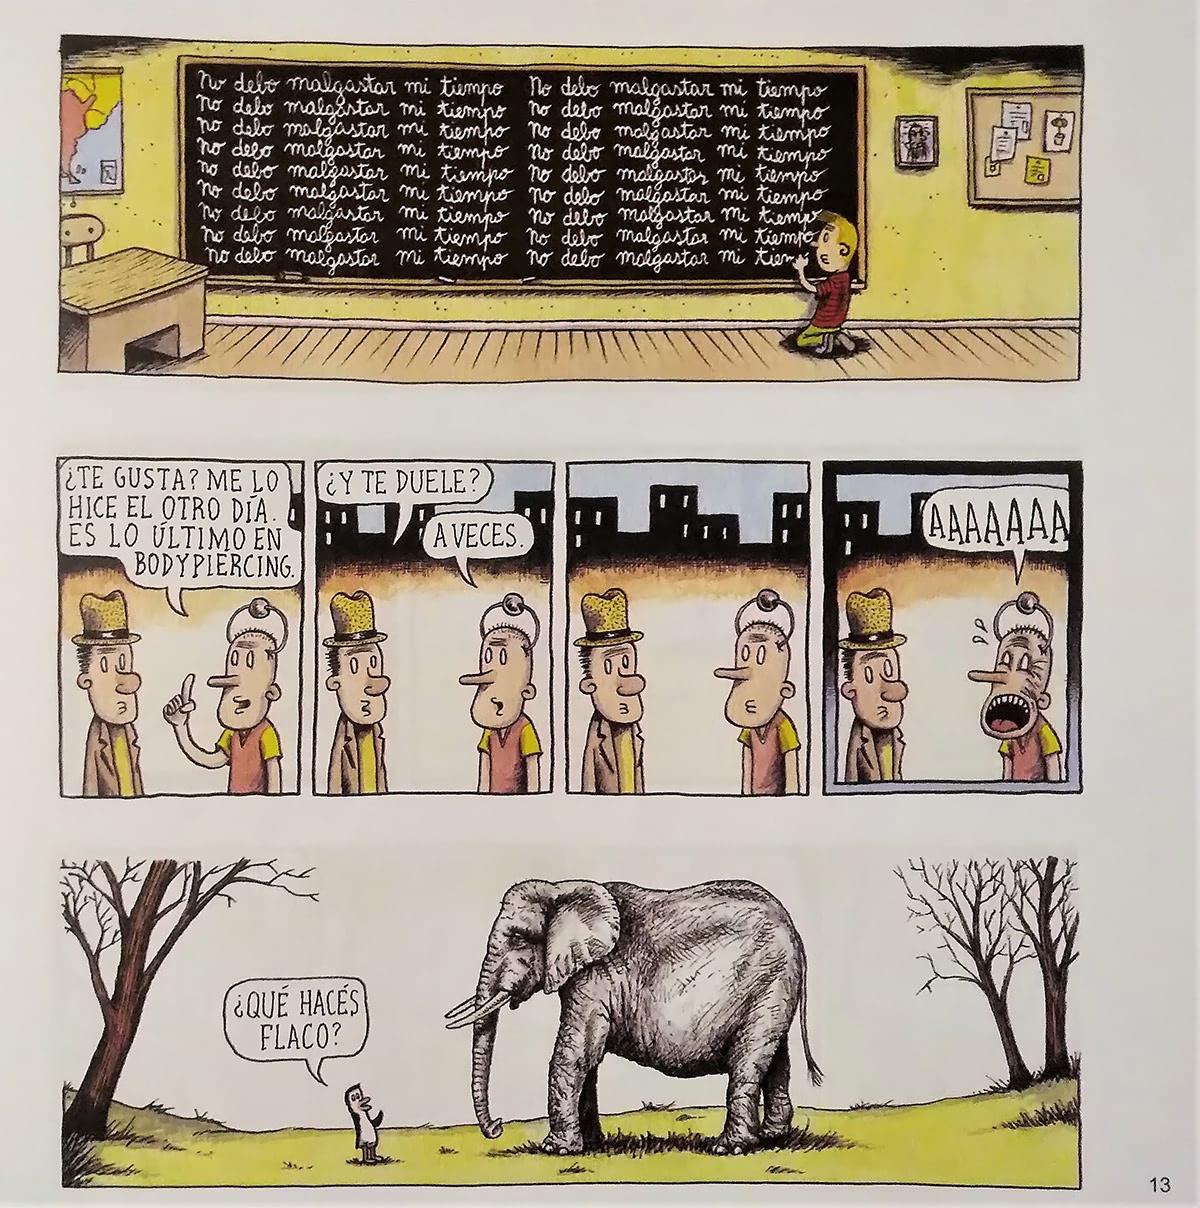 No debo malgastar mi tiempo No debo malgastar mi tiempo
No debo malgastar mi tiempo No debo malgastar mi tiempo
No debo malgastar mi tiempo No debo malgastar mi tiempo
No debo malgastar mi tiempo No debo malgastar mi tiempo
No debo malgastar mi tiempo No debo malgastar mi tiempo
No debo malgastar mi tiempo No debo malgastar mi tiempo
No debo malgastar mi tiempo No debo malgastar mi tiempo
No debo malgastar mi tiempo No debo malgastar mi tiempo
No debo malgastar mi tiempo No debo malgastar mi tiem
¿TE GUSTA? ME LO
HICE EL OTRO DÍA.
ES LO ÚLTIMO EN
BODYPIERCING.
¿Y TE DUELE?
A VECES.
AAAAAAA
¿QUÉ HACÉS
FLACO?
13